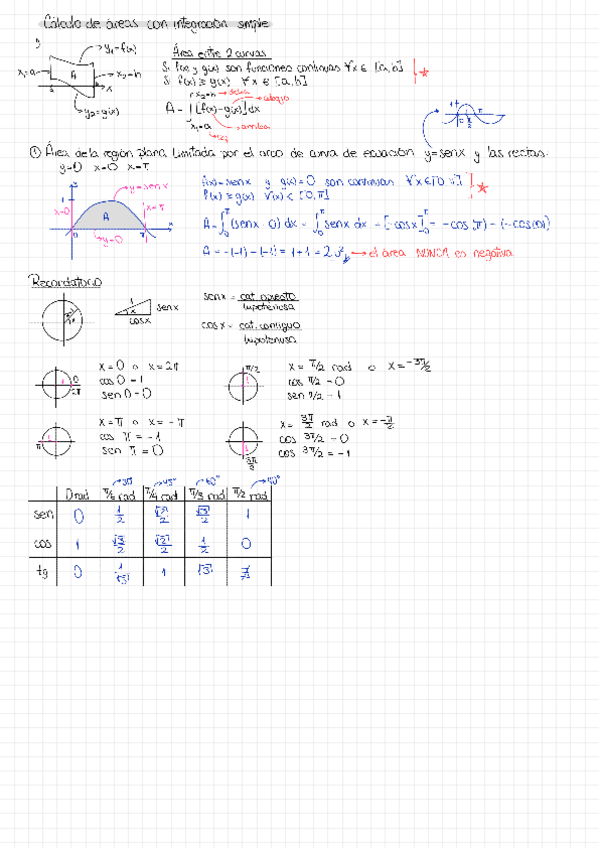 Cálculo de áreas con integración simple
y
y₁=f(x)
x₁=a
A
x₂=b
x
y₂=g(x)
Área entre 2 curvas
Si f(x) y g(x) son funciones continuas ∀x ∈ [a,b]
Si f(x) ≥ g(x) ∀x ∈ [a,b]
*
x₂=b
A = ∫ [f(x)-g(x)] dx
abajo
x₁=a
arriba
① Área de la región plana limitada por el arco de curva de ecuación y=senx y las rectas:
y=0 x=0 x=π
1
y=senx
x=0
x=π
A
0
π
x
y=0
f(x)=senx y g(x)=0 son continuas ∀x∈[0,π]
f(x) ≥ g(x) ∀(x) ∈ [0,π]
*
A = ∫₀^π (senx - 0) dx = ∫₀^π senx dx = [-cosx]₀^π = -cos(π) - (-cos(0))
A = -(-1) - (-1) = 1 + 1 = 2 u² → el área NUNCA es negativa
Recordatorio
1
x
senx
cosx
senx = cat. opuesto / hipotenusa
cosx = cat. contiguo / hipotenusa
0
2π
x=0 o x=2π
cos 0 = 1
sen 0 = 0
π/2
x = π/2 rad o x = -3π/2
cos π/2 = 0
sen π/2 = 1
π
x = π o x = -π
cos π = -1
sen π = 0
3π/2
x = 3π/2 rad o x = -π/2
cos 3π/2 = 0
cos 3π/2 = -1
30° 45° 60° 90°
0 rad π/6 rad π/4 rad π/3 rad π/2 rad
sen 0 1/2 √2/2 √3/2 1
cos 1 √3/2 √2/2 1/2 0
tg 0 1/√3 1 √3 ∄